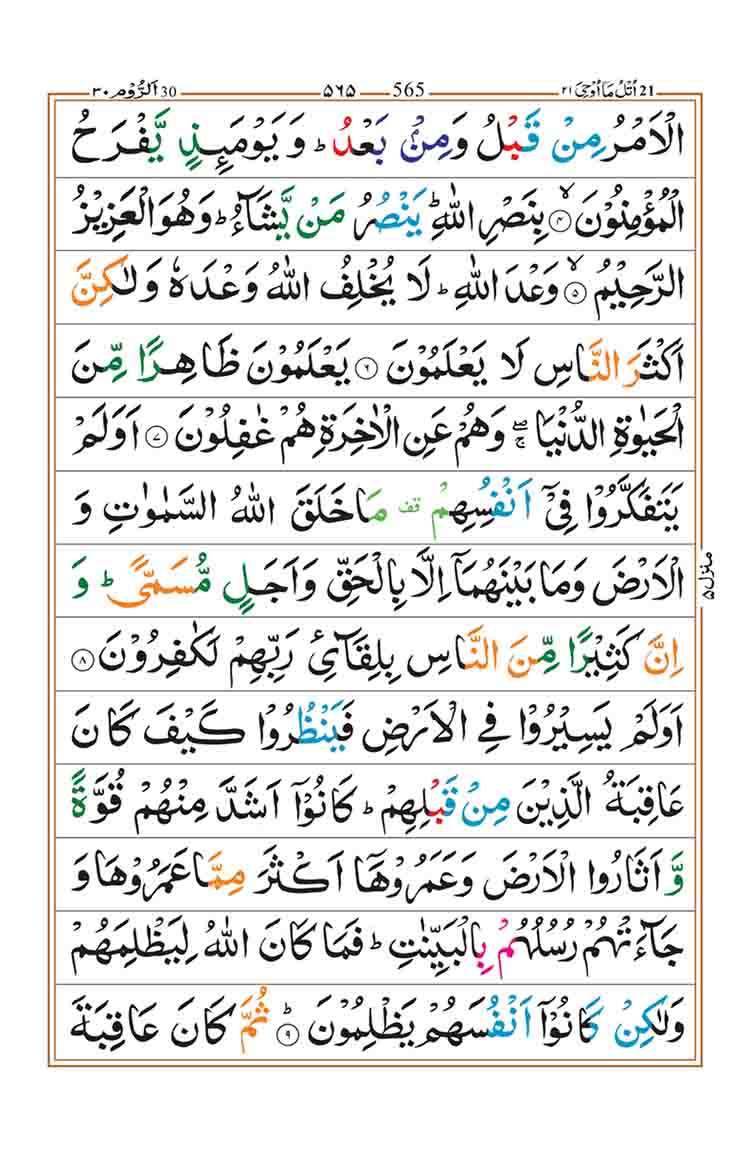 اُتْلُ مَآ اُوْحِیَ ٢١ 21 565 ۵۶۵ اَلرُّوْم ٣٠ 30
الْاَمْرُ مِنْ قَبْلُ وَمِنْۢ بَعْدُ ؕ وَ یَوْمَىِٕذٍ یَّفْرَحُ
الْمُؤْمِنُوْنَ ۙ﴿۴﴾ بِنَصْرِ اللّٰهِ ؕ یَنْصُرُ مَنْ یَّشَآءُ ؕ وَهُوَ الْعَزِیْزُ
الرَّحِیْمُ ۙ﴿۵﴾ وَعْدَ اللّٰهِ ؕ لَا یُخْلِفُ اللّٰهُ وَعْدَهٗ وَلٰكِنَّ
اَكْثَرَ النَّاسِ لَا یَعْلَمُوْنَ ﴿۶﴾ یَعْلَمُوْنَ ظَاهِرًا مِّنَ
الْحَیٰوةِ الدُّنْیَا ۖۚ وَهُمْ عَنِ الْاٰخِرَةِ هُمْ غٰفِلُوْنَ ﴿۷﴾ اَوَلَمْ
یَتَفَكَّرُوْا فِیْۤ اَنْفُسِهِمْ قف مَا خَلَقَ اللّٰهُ السَّمٰوٰتِ وَ
الْاَرْضَ وَمَا بَیْنَهُمَاۤ اِلَّا بِالْحَقِّ وَاَجَلٍ مُّسَمًّی ؕ وَ
اِنَّ كَثِیْرًا مِّنَ النَّاسِ بِلِقَآئِ رَبِّهِمْ لَكٰفِرُوْنَ ﴿۸﴾
اَوَلَمْ یَسِیْرُوْا فِی الْاَرْضِ فَیَنْظُرُوْا كَیْفَ كَانَ
عَاقِبَةُ الَّذِیْنَ مِنْ قَبْلِهِمْ ؕ كَانُوْۤا اَشَدَّ مِنْهُمْ قُوَّةً
وَّ اَثَارُوا الْاَرْضَ وَعَمَرُوْهَاۤ اَكْثَرَ مِمَّا عَمَرُوْهَا وَ
جَآءَتْهُمْ رُسُلُهُمْ بِالْبَیِّنٰتِ ؕ فَمَا كَانَ اللّٰهُ لِیَظْلِمَهُمْ
وَلٰكِنْ كَانُوْۤا اَنْفُسَهُمْ یَظْلِمُوْنَ ؕ﴿۹﴾ ثُمَّ كَانَ عَاقِبَةَ
منزل ۵